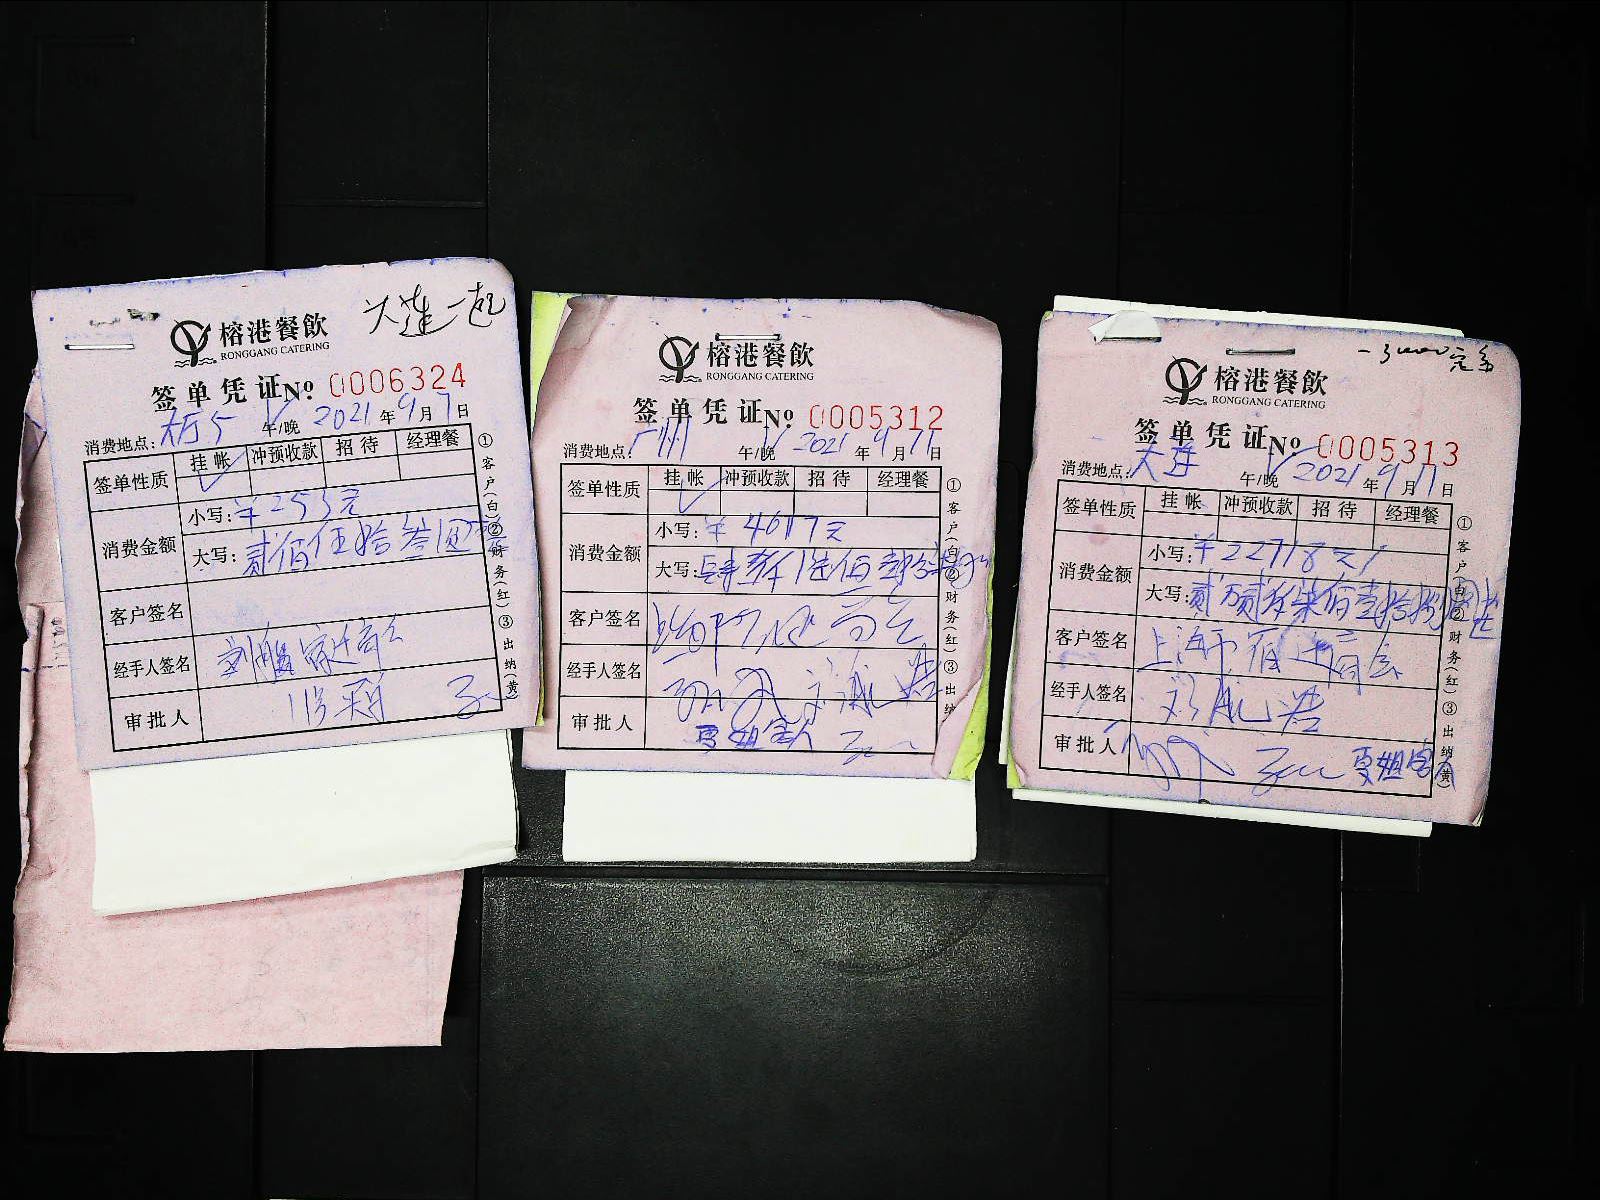 大连一起
榕港餐飲
RONGGANG CATERING
签单凭证№ 0006324
消费地点: 午/晚 2021年9月7日
签单性质 挂帐 冲预收款 招待 经理餐
消费金额
小写:¥253元
大写:贰佰伍拾叁圆
客户签名
经手人签名
审批人
①客户(白)②财务(红)③出纳(黄)
榕港餐飲
RONGGANG CATERING
签单凭证№ 0005312
消费地点:广州 午/晚 2021年9月11日
签单性质 挂帐 冲预收款 招待 经理餐
消费金额
小写:¥4617元
大写:
客户签名
经手人签名
审批人 夏姐客人
①客户(白)②财务(红)③出纳
榕港餐飲
RONGGANG CATERING
签单凭证№ 0005313
消费地点:大连 午/晚 2021年9月11日
签单性质 挂帐 冲预收款 招待 经理餐
消费金额
小写:¥22718元
大写:贰万贰仟柒佰壹拾捌圆
客户签名 上海
经手人签名
审批人 夏姐客人
①客户(白)②财务(红)③出纳(黄)